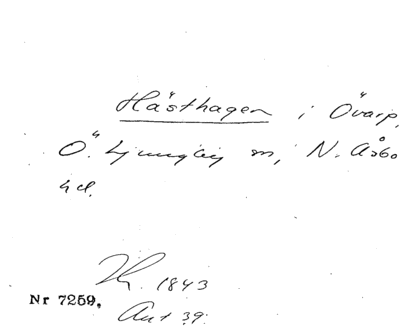 Hästhagen i Övarp,
Ö. Ljungby sn, N. Åsbo
hd.
1843
Nr 7259.
Ant 39.